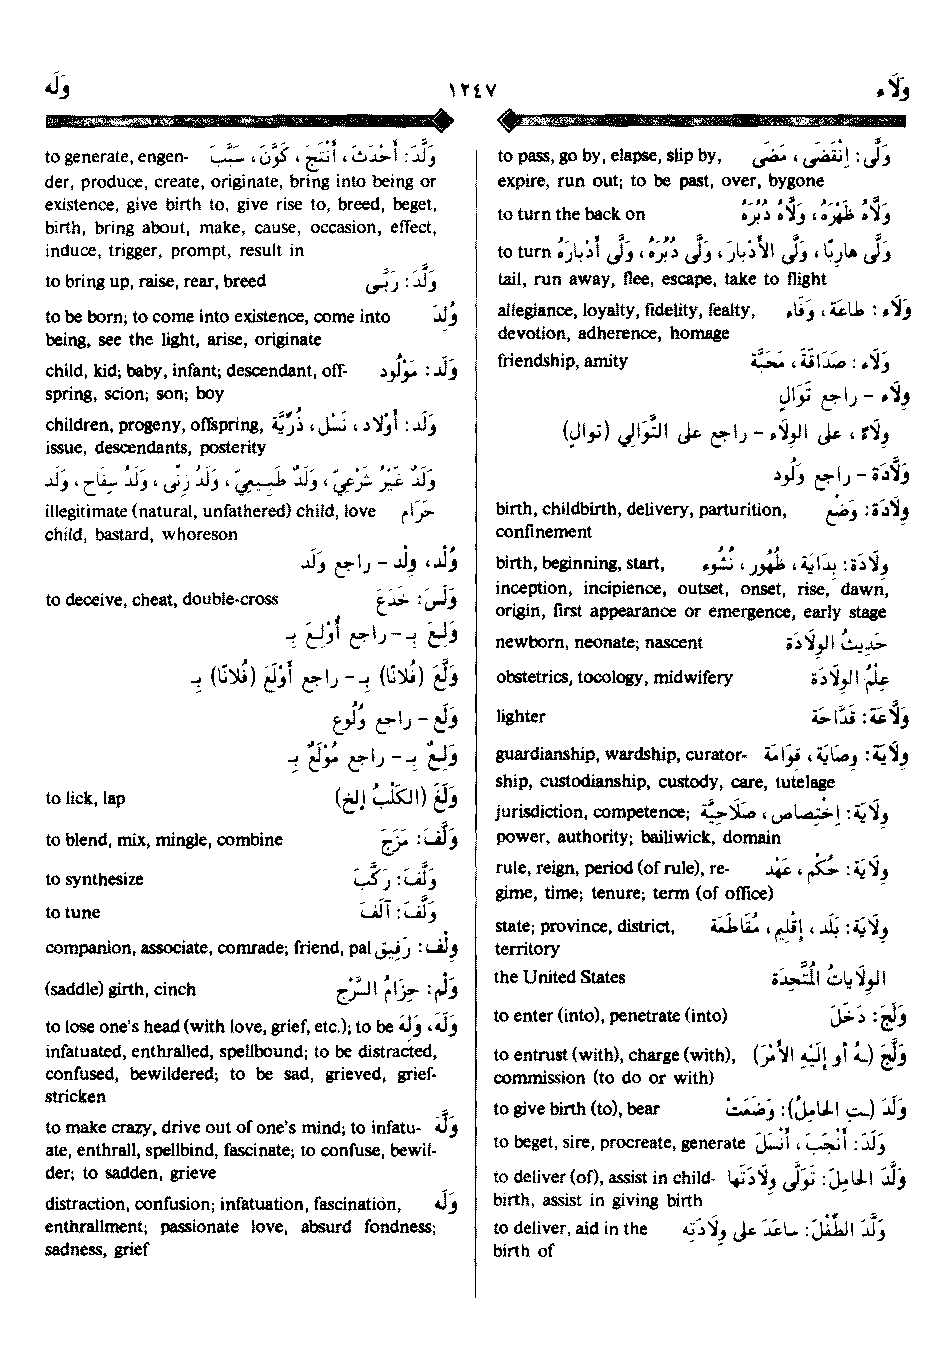 وَلَاء
١٢٤٧
وَلَه
وَلَّى: اِنْقَضَى، مَضَى to pass, go by, elapse, slip by,
expire, run out; to be past, over, bygone
وَلَّاهُ ظَهْرَهُ، وَلَّاهُ دُبُرَهُ to turn the back on
وَلَّى هَارِبًا، وَلَّى الأَدْبَارَ، وَلَّى دُبُرَهُ، وَلَّى أَدْبَارَهُ to turn
tail, run away, flee, escape, take to flight
وَلَاء: طَاعَة، وَفَاء allegiance, loyalty, fidelity, fealty,
devotion, adherence, homage
وَلَاء: صَدَاقَة، مَحَبَّة friendship, amity
وِلَاء - راجع تَوَالٍ
وِلَاءً، على الوِلَاء - راجع على التَّوَالِي (توال)
وَلَّادَة - راجع وَلُود
وِلَادَة: وَضْع birth, childbirth, delivery, parturition,
confinement
وِلَادَة: بِدَايَة، ظُهُور، نُشُوء birth, beginning, start,
inception, incipience, outset, onset, rise, dawn,
origin, first appearance or emergence, early stage
حَدِيثُ الوِلَادَة newborn, neonate; nascent
عِلْمُ الوِلَادَة obstetrics, tocology, midwifery
وَلَّاعَة: قَدَّاحَة lighter
وِلَايَة: وِصَايَة، قِوَامَة guardianship, wardship, curator-
ship, custodianship, custody, care, tutelage
وِلَايَة: اِخْتِصَاص، صَلَاحِيَّة jurisdiction, competence;
power, authority; bailiwick, domain
وِلَايَة: حُكْم، عَهْد rule, reign, period (of rule), re-
gime, time; tenure; term (of office)
وِلَايَة: بَلَد، إِقْلِيم، مُقَاطَعَة state; province, district,
territory
الوِلَايَاتُ المُتَّحِدَة the United States
وَلَجَ: دَخَلَ to enter (into), penetrate (into)
وَلَّجَ (ـهُ أو إِلَيْهِ الأَمْرَ) to entrust (with), charge (with),
commission (to do or with)
وَلَدَ (ـتِ الحَامِلُ): وَضَعَتْ to give birth (to), bear
وَلَدَ: أَنْجَبَ، أَنْسَلَ to beget, sire, procreate, generate
وَلَّدَ الحَامِلَ: تَوَلَّى وِلَادَتَها to deliver (of), assist in child-
birth, assist in giving birth
وَلَّدَ الطِّفْلَ: سَاعَدَ على وِلَادَتِهِ to deliver, aid in the
birth of
وَلَّدَ: أَحْدَثَ، أَنْتَجَ، كَوَّنَ، سَبَّبَ to generate, engen-
der, produce, create, originate, bring into being or
existence, give birth to, give rise to, breed, beget,
birth, bring about, make, cause, occasion, effect,
induce, trigger, prompt, result in
وَلَّدَ: رَبَّى to bring up, raise, rear, breed
وُلِدَ to be born; to come into existence, come into
being, see the light, arise, originate
وَلَد: مَوْلُود child, kid; baby, infant; descendant, off-
spring, scion; son; boy
وَلَد: أَوْلَاد، نَسْل، ذُرِّيَّة children, progeny, offspring,
issue, descendants, posterity
وَلَدٌ غَيْرُ شَرْعِيّ، وَلَدٌ طَبِيعِيّ، وَلَدُ زِنًى، وَلَدُ سِفَاح، وَلَدُ
حَرَام illegitimate (natural, unfathered) child, love
child, bastard, whoreson
وُلْد، وِلْد - راجع وَلَد
وَلَسَ: خَدَعَ to deceive, cheat, double-cross
وَلِعَ بِـ - راجع أُولِعَ بِـ
وَلَّعَ (فُلَانًا) بِـ - راجع أَوْلَعَ (فُلَانًا) بِـ
وَلَع - راجع وُلُوع
وَلِعٌ بِـ - راجع مُوْلَعٌ بِـ
وَلَغَ (الكَلْبُ إلخ) to lick, lap
وَلَّفَ: مَزَجَ to blend, mix, mingle, combine
وَلَّفَ: رَكَّبَ to synthesize
وَلَّفَ: آلَفَ to tune
وِلْف: رَفِيق companion, associate, comrade; friend, pal
وَلْم: حِزَامُ السَّرْج (saddle) girth, cinch
وَلَهَ، وَلِهَ to lose one's head (with love, grief, etc.); to be
infatuated, enthralled, spellbound; to be distracted,
confused, bewildered; to be sad, grieved, grief-
stricken
وَلَّهَ to make crazy, drive out of one's mind; to infatu-
ate, enthrall, spellbind, fascinate; to confuse, bewil-
der; to sadden, grieve
وَلَه distraction, confusion; infatuation, fascination,
enthrallment; passionate love, absurd fondness;
sadness, grief